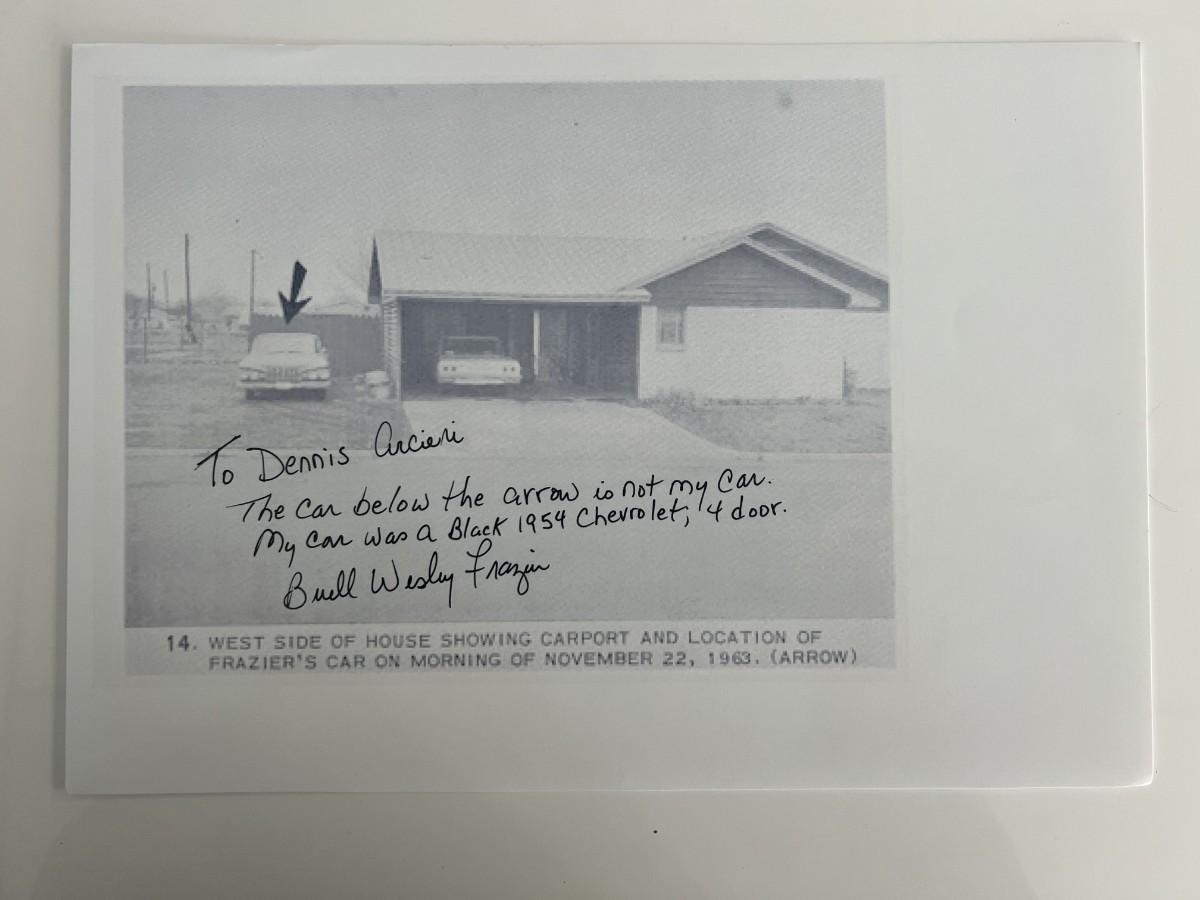 To Dennis Arcieri
The car below the arrow is not my car.
My car was a Black 1954 Chevrolet, 4 door.
Buell Wesley Frazier
14. WEST SIDE OF HOUSE SHOWING CARPORT AND LOCATION OF
FRAZIER'S CAR ON MORNING OF NOVEMBER 22, 1963. (ARROW)